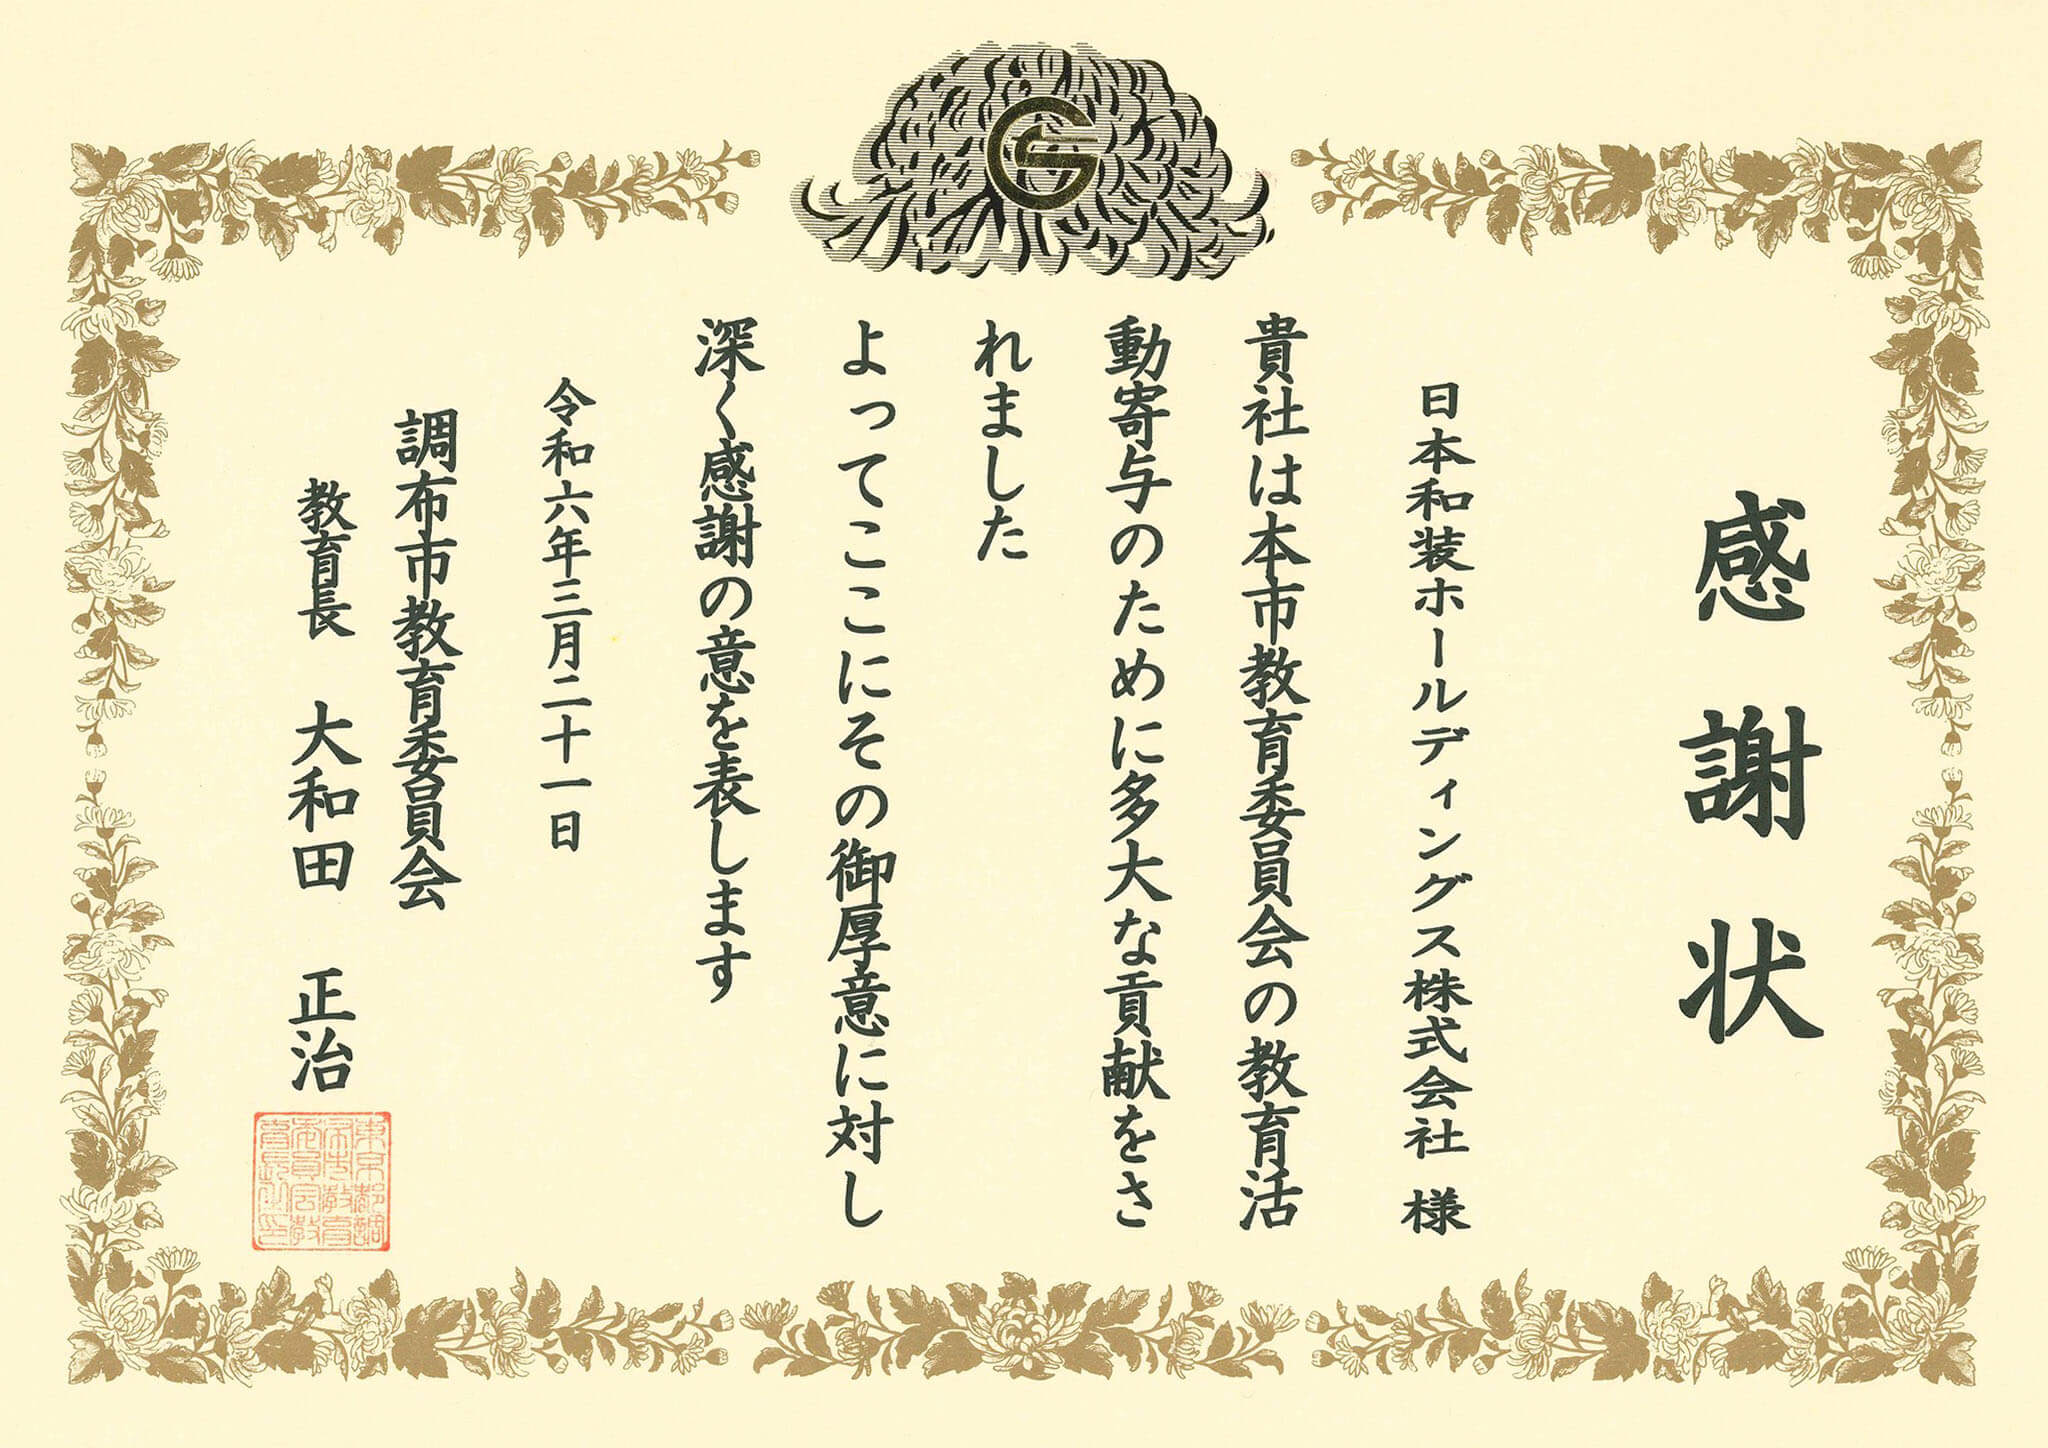 感謝状
日本和装ホールディングス株式会社 様
貴社は本市教育委員会の教育活
動寄与のために多大な貢献をさ
れました
よってここにその御厚意に対し
深く感謝の意を表します
令和六年三月二十一日
調布市教育委員会
教育長 大和田 正治
東京都調
布市教育
委員会教
育長之印